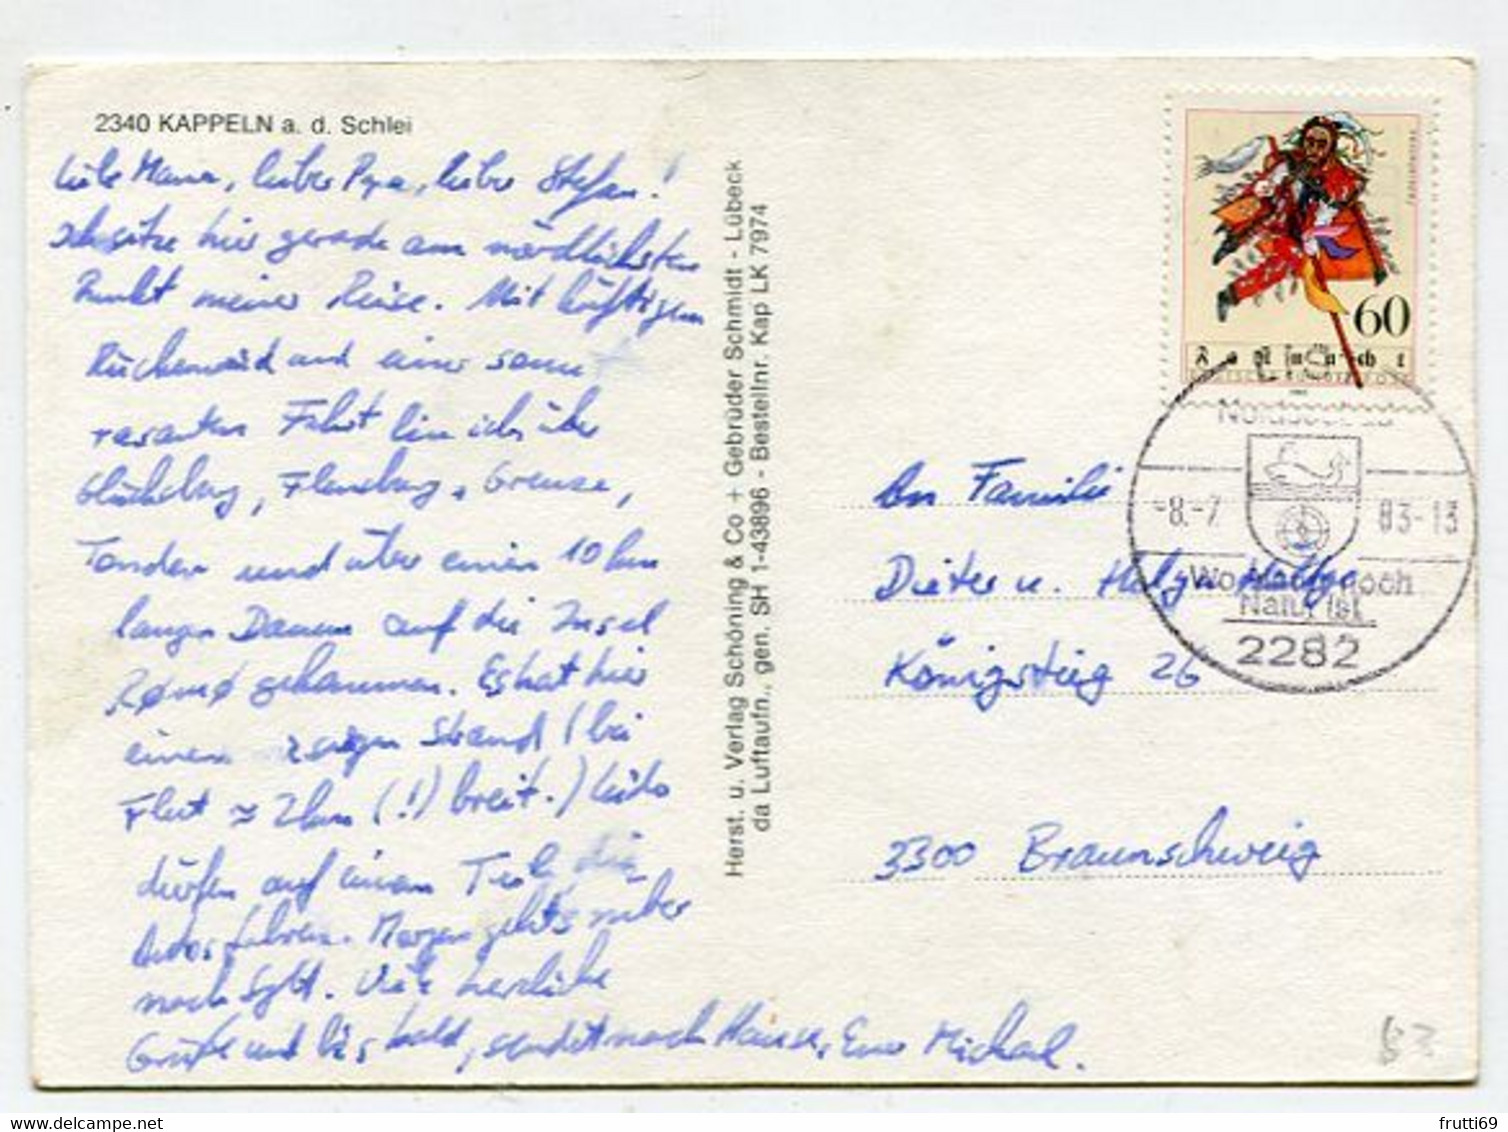 2340 KAPPELN a. d. Schlei
Liebe Mama, lieber Papa, lieber Stefan!
Ich sitze hier gerade am nördlichsten
Punkt meiner Reise. Mit kräftigem
Rückenwind und einer sonst
rasanten Fahrt bin ich über
Glücksburg, Flensburg, Grenze,
Tondern und über einen 10 km
langen Damm auf die Insel
Rømø gekommen. Es hat hier
einen Strand (bei
Flut ≈ 2 km (!) breit.) Leider
dürfen auf einem Teil die
Autos fahren. Morgen geht's rüber
nach Sylt. Viele herzliche
Grüße und bis bald, nach Hause, Euer Michael.
Herst. u. Verlag Schöning & Co + Gebrüder Schmidt - Lübeck
da Luftaufn., gen. SH 1-43896 - Bestellnr. Kap LK 7974
60
Fastnacht
DEUTSCHE BUNDESPOST
Nordseebad
-8.-7. 83-13
Wo noch
Natur ist
2282
An Familie
Dieter u. Helga
Königstieg 26
3300 Braunschweig
delcampe.net
frutti69